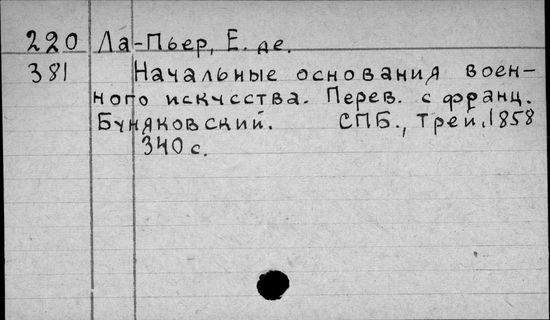 220 Ла-Пьер, Е. де.
381 Начальные основания воен-
ного искусства. Перев. с франц.
Буняковский. СПБ., Трей. 1858
340 с.